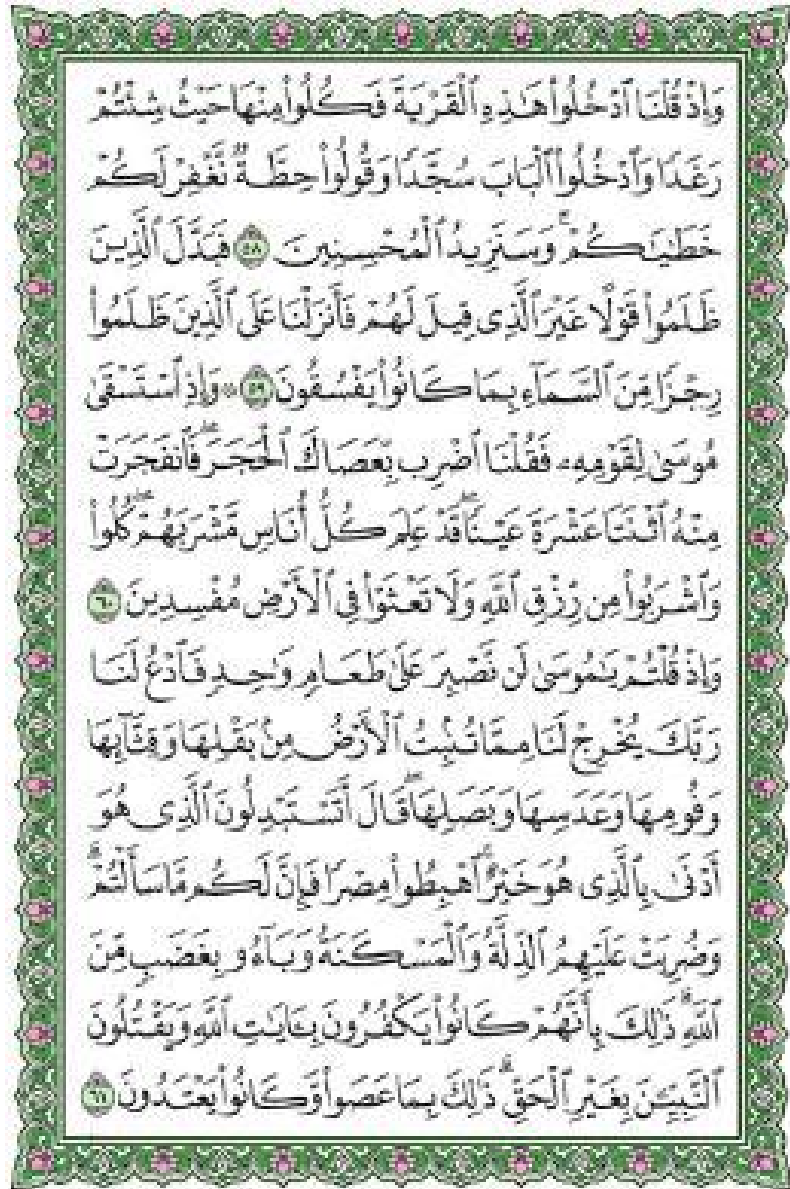 وَإِذْ قُلْنَا ٱدْخُلُوا۟ هَـٰذِهِ ٱلْقَرْيَةَ فَكُلُوا۟ مِنْهَا حَيْثُ شِئْتُمْ
رَغَدًا وَٱدْخُلُوا۟ ٱلْبَابَ سُجَّدًا وَقُولُوا۟ حِطَّةٌ نَّغْفِرْ لَكُمْ
خَطَـٰيَـٰكُمْ ۚ وَسَنَزِيدُ ٱلْمُحْسِنِينَ ٥٨ فَبَدَّلَ ٱلَّذِينَ
ظَلَمُوا۟ قَوْلًا غَيْرَ ٱلَّذِى قِيلَ لَهُمْ فَأَنزَلْنَا عَلَى ٱلَّذِينَ ظَلَمُوا۟
رِجْزًا مِّنَ ٱلسَّمَآءِ بِمَا كَانُوا۟ يَفْسُقُونَ ٥٩ ۞ وَإِذِ ٱسْتَسْقَىٰ
مُوسَىٰ لِقَوْمِهِۦ فَقُلْنَا ٱضْرِب بِّعَصَاكَ ٱلْحَجَرَ ۖ فَٱنفَجَرَتْ
مِنْهُ ٱثْنَتَا عَشْرَةَ عَيْنًا ۖ قَدْ عَلِمَ كُلُّ أُنَاسٍ مَّشْرَبَهُمْ ۖ كُلُوا۟
وَٱشْرَبُوا۟ مِن رِّزْقِ ٱللَّهِ وَلَا تَعْثَوْا۟ فِى ٱلْأَرْضِ مُفْسِدِينَ ٦٠
وَإِذْ قُلْتُمْ يَـٰمُوسَىٰ لَن نَّصْبِرَ عَلَىٰ طَعَامٍ وَٰحِدٍ فَٱدْعُ لَنَا
رَبَّكَ يُخْرِجْ لَنَا مِمَّا تُنۢبِتُ ٱلْأَرْضُ مِنۢ بَقْلِهَا وَقِثَّآئِهَا
وَفُومِهَا وَعَدَسِهَا وَبَصَلِهَا ۖ قَالَ أَتَسْتَبْدِلُونَ ٱلَّذِى هُوَ
أَدْنَىٰ بِٱلَّذِى هُوَ خَيْرٌ ۚ ٱهْبِطُوا۟ مِصْرًا فَإِنَّ لَكُم مَّا سَأَلْتُمْ ۗ
وَضُرِبَتْ عَلَيْهِمُ ٱلذِّلَّةُ وَٱلْمَسْكَنَةُ وَبَآءُو بِغَضَبٍ مِّنَ
ٱللَّهِ ۗ ذَٰلِكَ بِأَنَّهُمْ كَانُوا۟ يَكْفُرُونَ بِـَٔايَـٰتِ ٱللَّهِ وَيَقْتُلُونَ
ٱلنَّبِيِّـۧنَ بِغَيْرِ ٱلْحَقِّ ۗ ذَٰلِكَ بِمَا عَصَوا۟ وَّكَانُوا۟ يَعْتَدُونَ ٦١